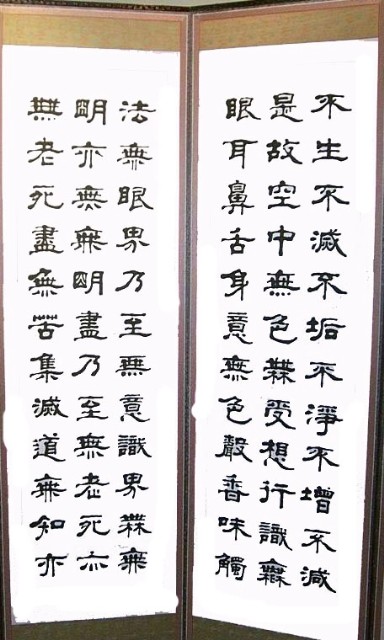 不生不滅不垢不淨不增不減
是故空中無色無受想行識無
眼耳鼻舌身意無色聲香味觸
法無眼界乃至無意識界無無
明亦無無明盡乃至無老死亦
無老死盡無苦集滅道無知亦